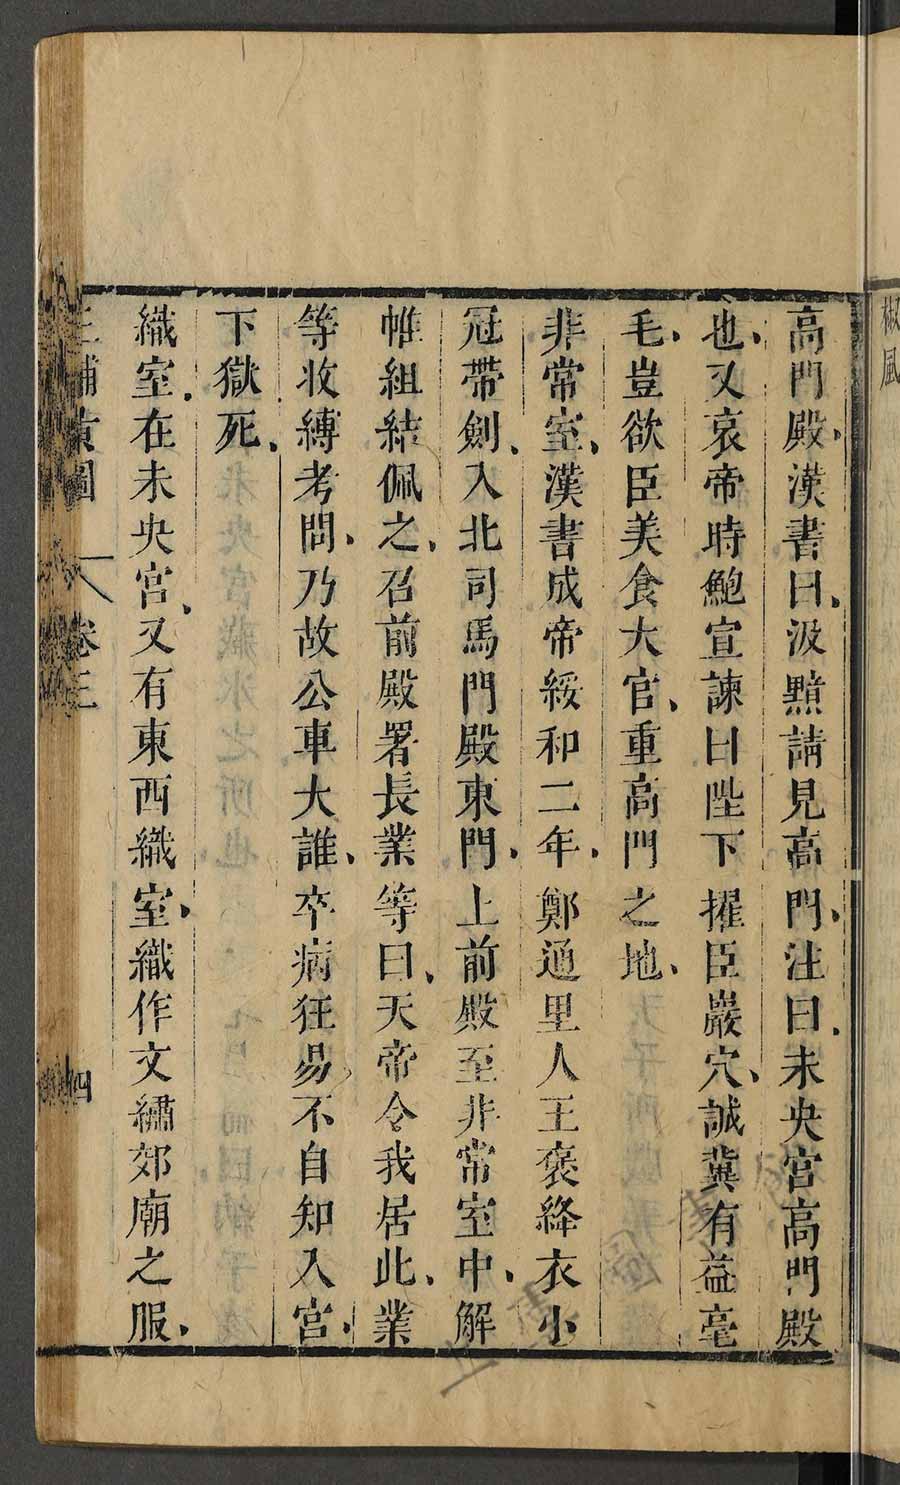 椒風
高門殿、漢書曰、汲黯請見高門、注曰、未央宮高門殿
也、又哀帝時鮑宣諫曰陛下擢臣巖穴、誠冀有益毫
毛、豈欲臣美食大官、重高門之地、
非常室、漢書成帝綏和二年、鄭通里人王褒絳衣小
冠帶劍、入北司馬門殿東門、上前殿至非常室中、解
帷組結佩之、召前殿署長業等曰、天帝令我居此、業
等收縛考問、乃故公車大誰、卒病狂易、不自知入宮、
下獄死、
織室、在未央宮、又有東西織室、織作文繡郊廟之服、
三輔黃圖 卷三 四